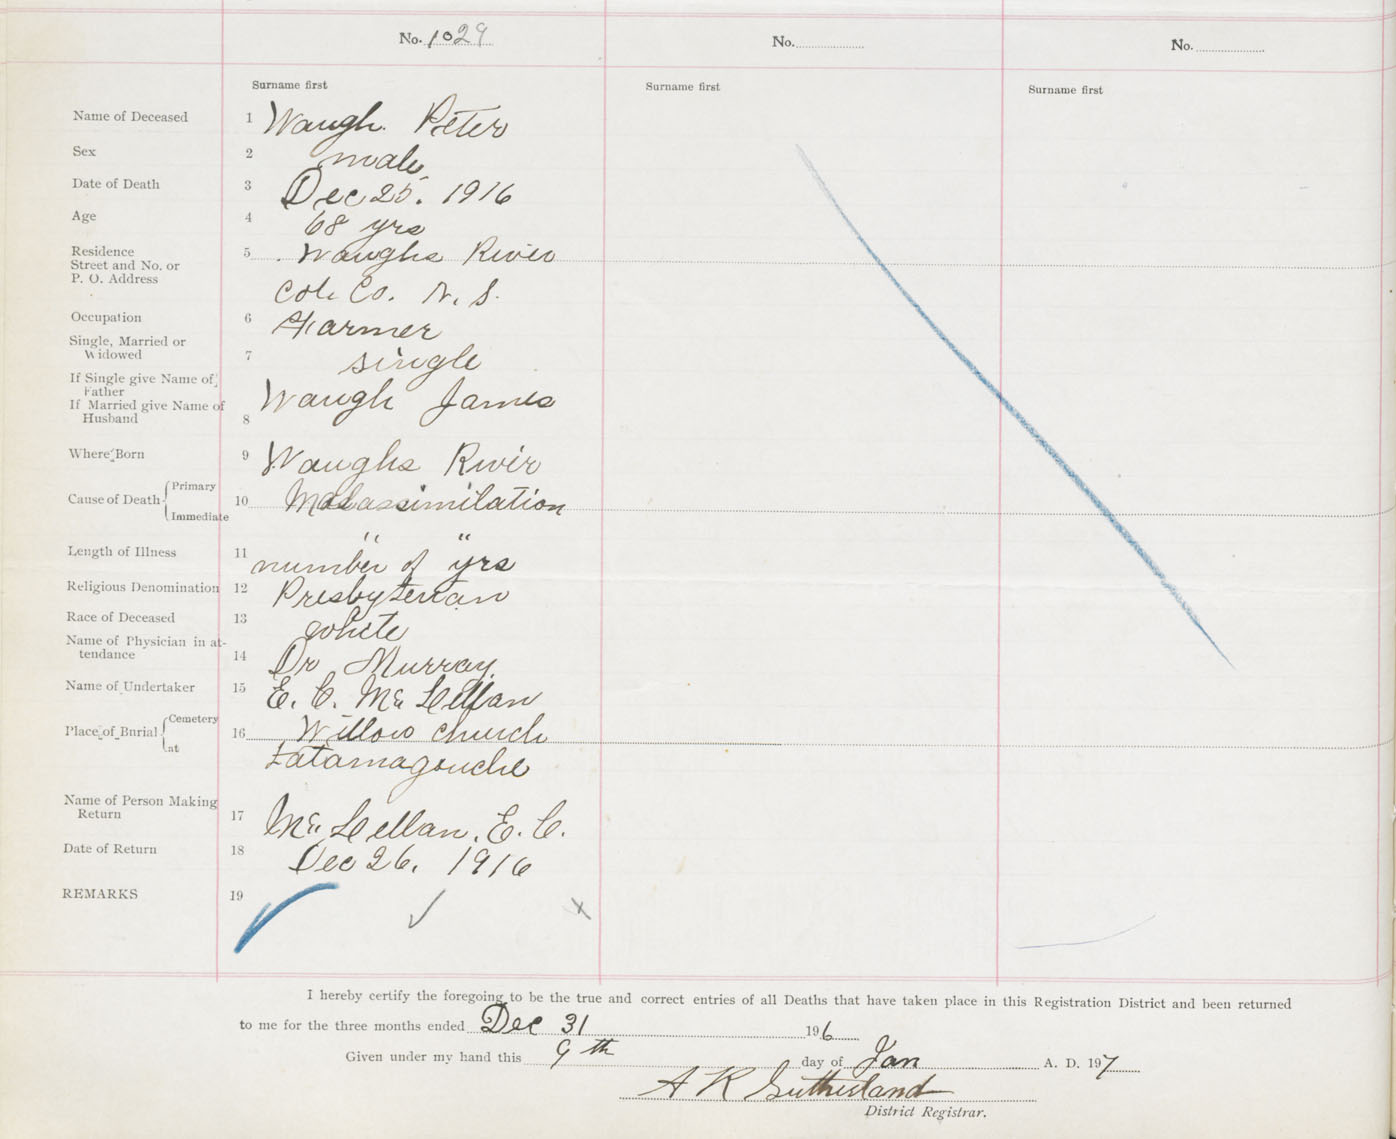 No. 1029
No.
No.
Surname first
Surname first
Surname first
Name of Deceased 1 Waugh Peter
Sex 2 male
Date of Death 3 Dec 25. 1916
Age 4 68 yrs
Residence 5 Waughs River
Street and No. or
P. O. Address
Col. Co. N. S.
Occupation 6 Farmer
Single, Married or
Widowed 7 single
If Single give Name of
Father
Waugh James
If Married give Name of
Husband 8
Where Born 9 Waughs River
Cause of Death Primary
10 Malassimilation
Immediate
" "
Length of Illness 11 number of yrs
Religious Denomination 12 Presbyterian
Race of Deceased 13 white
Name of Physician in at-
tendance 14 Dr Murray
Name of Undertaker 15 E. C. McLellan
Place of Burial Cemetery
16 Willow church
at
Tatamagouche
Name of Person Making
Return 17 McLellan, E. C.
Date of Return 18 Dec 26. 1916
REMARKS 19
I hereby certify the foregoing to be the true and correct entries of all Deaths that have taken place in this Registration District and been returned
to me for the three months ended Dec 31 196
Given under my hand this 9th day of Jan A. D. 197
A R Sutherland
District Registrar.